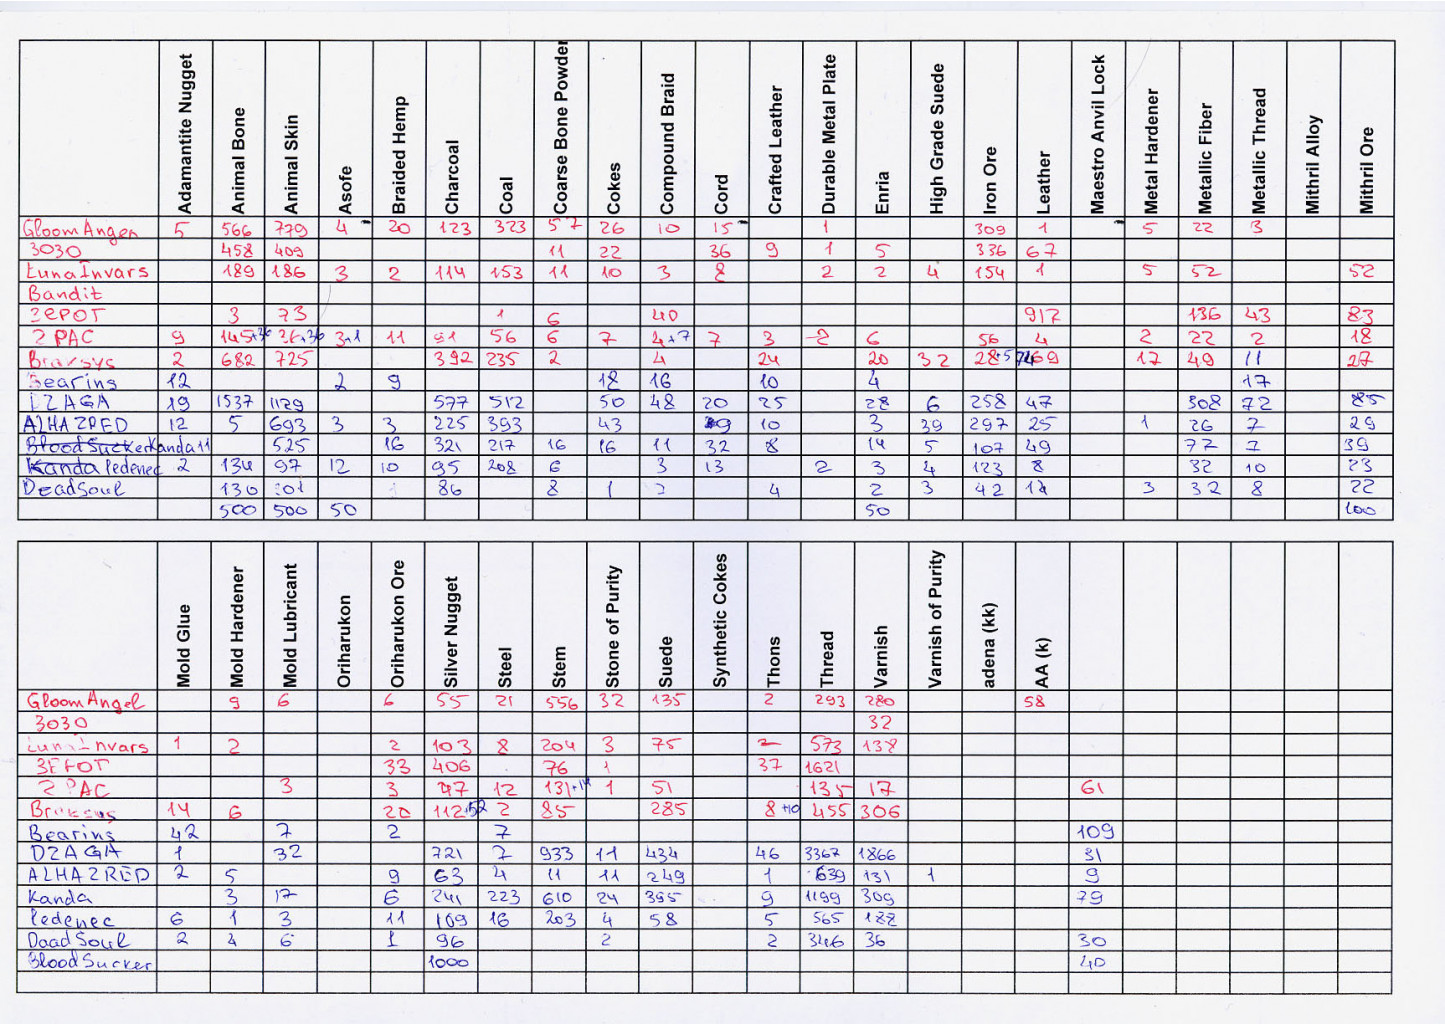 Adamantite Nugget Animal Bone Animal Skin Asofe Braided Hemp Charcoal Coal Coarse Bone Powder Cokes Compound Braid Cord Crafted Leather Durable Metal Plate Enria High Grade Suede Iron Ore Leather Maestro Anvil Lock Metal Hardener Metallic Fiber Metallic Thread Mithril Alloy Mithril Ore
GloomAngel 5 566 779 4 20 123 323 57 26 10 15 1 309 1 5 22 3
3030 458 409 11 22 36 9 1 5 336 67
LunaInvars 189 186 3 2 114 153 11 10 3 8 2 2 4 154 1 5 52 52
Bandit
3EPOT 3 73 1 6 40 917 136 43 83
2PAC 9 145+36 26+36 3+1 11 91 56 6 7 4+7 7 3 2 6 56 4 2 22 2 18
2 682 725 392 235 2 4 24 20 32 17 49 11 27
Bearing 12 2 9 18 16 10 4 17
DZAGA 19 1537 1129 577 512 50 48 20 25 28 6 258 47 308 72 85
ALHAZRED 12 5 693 3 3 225 393 43 10 3 39 297 25 1 26 7 29
BloodSucker Kanda11 525 16 321 217 16 16 11 32 8 14 5 107 49 77 7 39
Kanda ledenec 2 134 97 12 10 95 208 6 3 13 2 3 4 123 8 32 10 23
DeadSoul 130 101 86 8 1 4 2 3 42 14 3 32 8 22
500 500 50 50 100
Mold Glue Mold Hardener Mold Lubricant Oriharukon Oriharukon Ore Silver Nugget Steel Stem Stone of Purity Suede Synthetic Cokes Thons Thread Varnish Varnish of Purity adena (kk) AA (k)
GloomAngel 9 6 6 55 21 556 32 135 2 293 280 58
3030 32
LunaInvars 1 2 2 103 8 204 3 75 2 573 138
3EPOT 33 406 76 1 37 1621
2PAC 3 3 47 12 131+14 1 51 135 17 61
14 6 20 112+52 2 85 285 8+10 455 306
Bearing 42 7 2 7 109
DZAGA 1 32 721 7 933 11 434 46 3367 1866 31
ALHAZRED 2 5 9 63 4 11 11 249 1 639 131 1 9
Kanda 3 17 6 241 223 610 24 395 9 1199 309 79
ledenec 6 1 3 11 109 16 203 4 58 5 565 188
DeadSoul 2 4 6 1 96 2 2 346 36 30
BloodSucker 1000 40